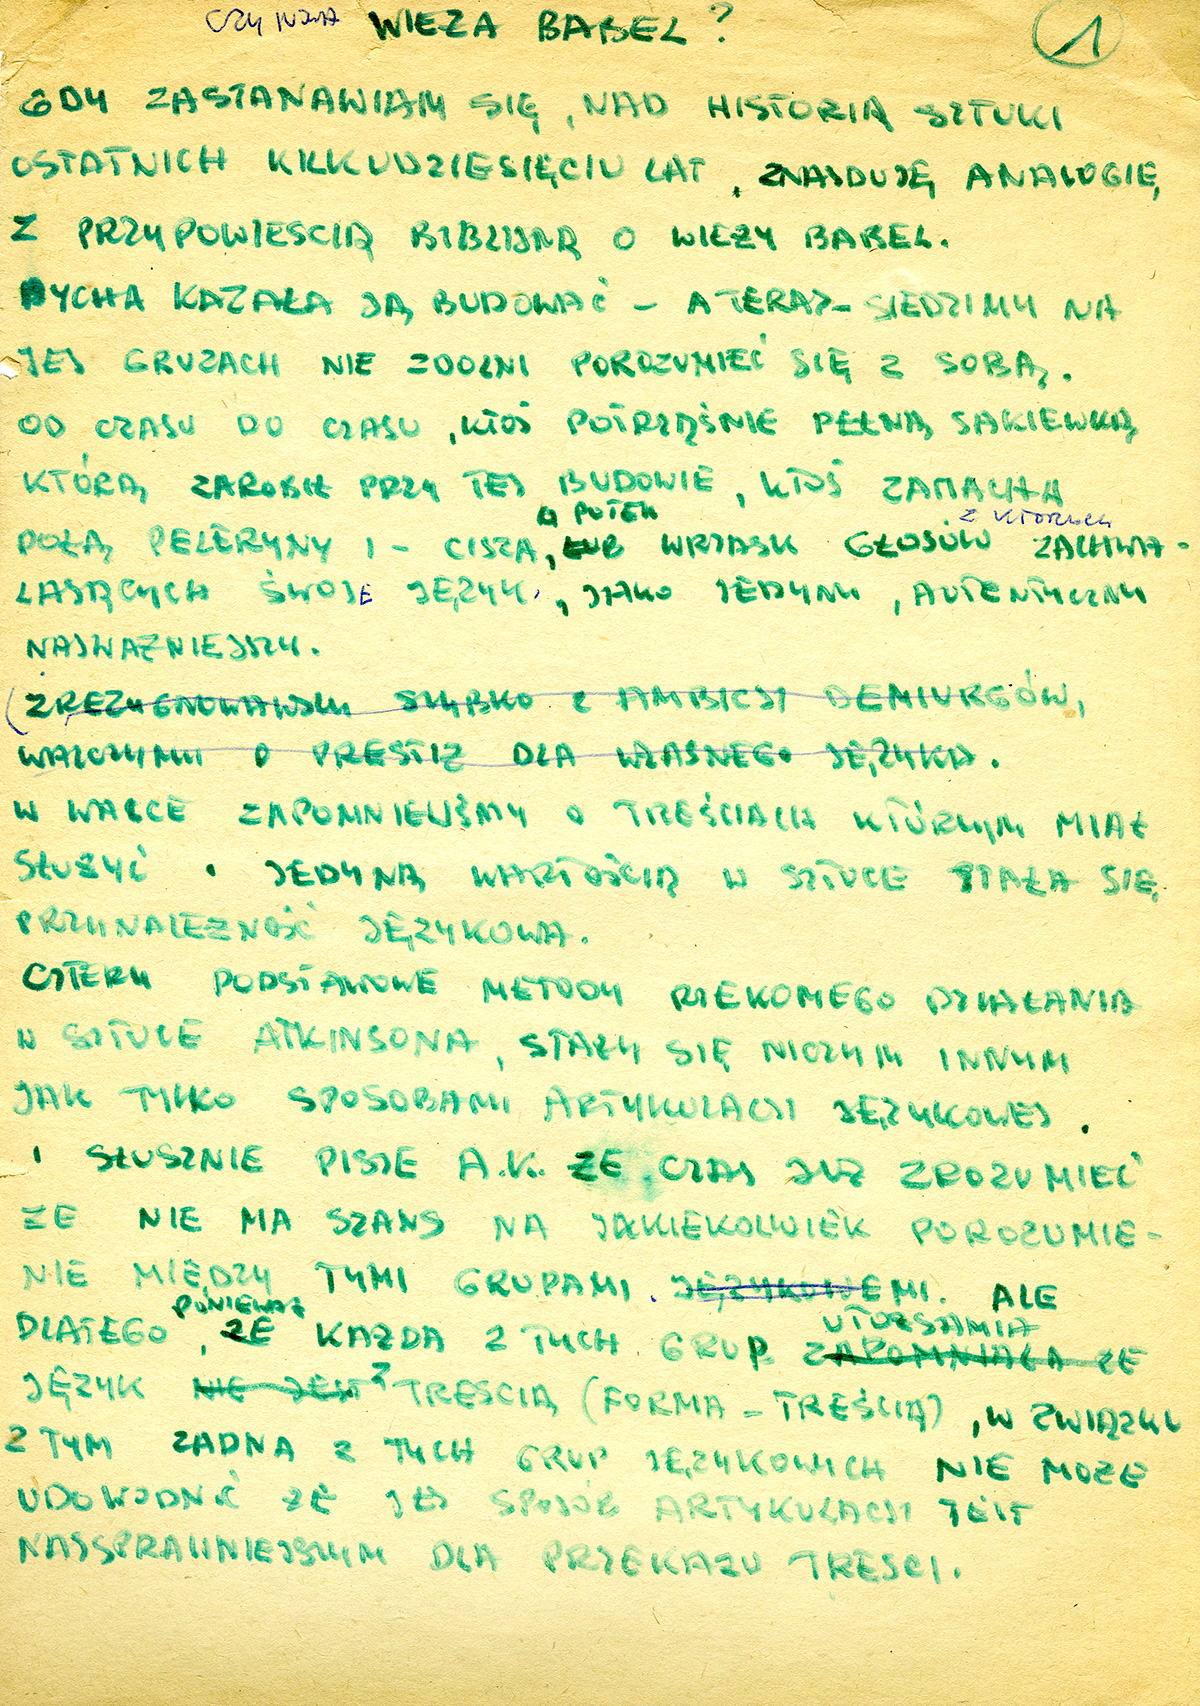 CZY NOWA WIEZA BABEL?
1
GDY ZASTANAWIAM SIĘ, NAD HISTORIĄ SZTUKI
OSTATNICH KILKUDZIESIĘCIU LAT, ZNAJDUJĘ ANALOGIE,
Z PRZYPOWIESCIĄ BIBLIJNĄ O WIEZY BABEL.
PYCHA KAZAŁA JĄ BUDOWAĆ – A TERAZ – SIEDZIMY NA
JEJ GRUZACH NIE ZDOLNI POROZUMIEĆ SIĘ Z SOBĄ.
OD CZASU DO CZASU, KTOŚ POTRZĄŚNIE PEŁNĄ SAKIEWKĄ
KTÓRĄ ZAROBIŁ PRZY TEJ BUDOWIE, KTOŚ ZAMACHA
A POTEM
Z KTORYCH
POŁĄ PELERYNY I – CISZA, LUB WRZASK GŁOSÓW ZACHWA-
LAJĄCYCH ŚWOJE JĘZYK, JAKO JEDYNY, AUTENTYCZNY
NAJWAŻNIEJSZY.
(ZREZYGNOWAWSZY SZYBKO Z AMBICJI DEMIURGÓW,
WALCZYMY O PRESTIŻ DLA WŁASNEGO JĘZYKA.
W WALCE ZAPOMNIELIŚMY O TREŚCIACH KTÓRYM MIAŁ
SŁUŻYĆ. JEDYNĄ WARTOŚCIĄ W SZTUCE STAŁA SIĘ
PRZYNALEŻNOŚĆ JĘZYKOWA.
CZTERY PODSTAWOWE METODY RZEKOMEGO DZIAŁANIA
W SZTUCE ATKINSONA, STAŁY SIĘ NICZYM INNYM
JAK TYLKO SPOSOBAMI ARTYKULACJI JĘZYKOWEJ.
I SŁUSZNIE PISZE A.K. ŻE CZAS JUŻ ZROZUMIEĆ
ŻE NIE MA SZANS NA JAKIEKOLWIEK POROZUMIE-
NIE MIĘDZY TYMI GRUPAMI. JĘZYKOWEMI. ALE
PONIEWAŻ
UTOŻSAMIA
DLATEGO, ŻE KAZDA Z TYCH GRUP ZAPOMNIAŁA ZE
JĘZYK NIE JEST Z TREŚCIĄ (FORMA – TREŚCIĄ), W ZWIĄZKU
Z TYM ZADNA Z TYCH GRUP JĘZYKOWYCH NIE MOŻE
UDOWODNIĆ ŻE JEJ SPOSÓB ARTYKULACJI JEST
NAJSPRAWNIEJSZYM DLA PRZEKAZU TRESCI.